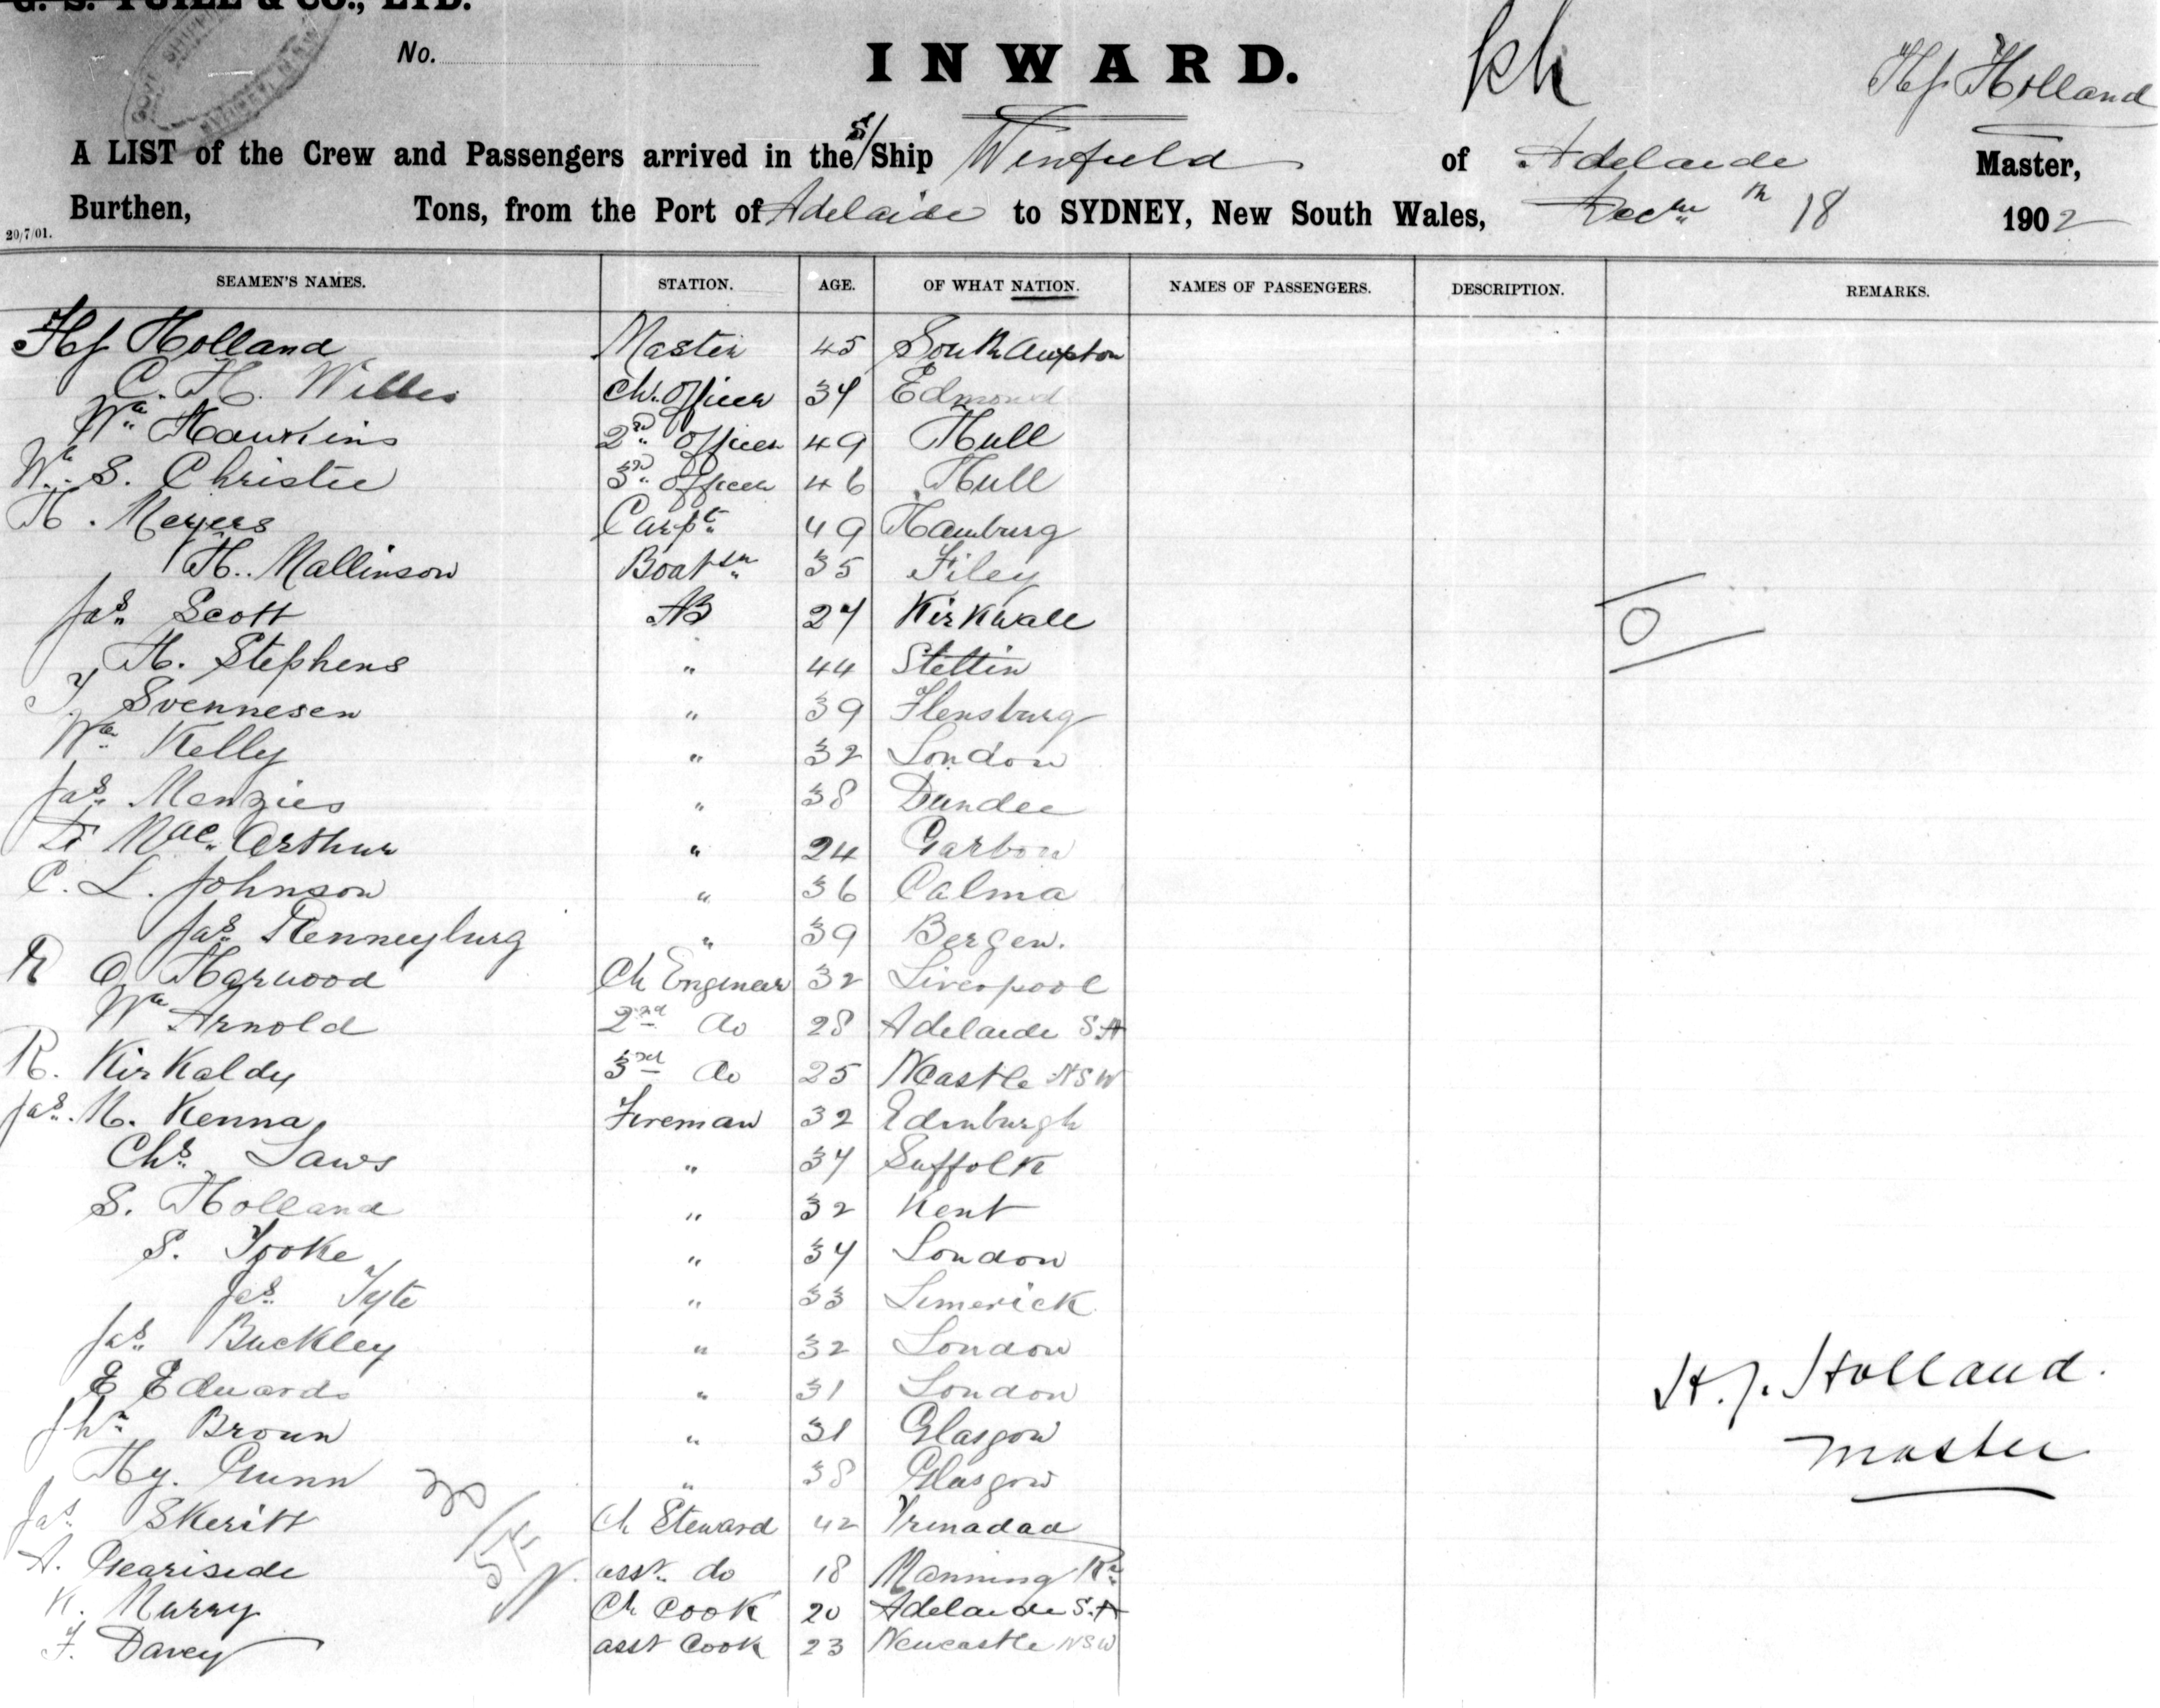 G. S. YUILL & CO., LTD.
No.
INWARD.
H J Holland
A LIST of the Crew and Passengers arrived in the S/Ship Winfield of Adelaide Master,
Burthen, Tons, from the Port of Adelaide to SYDNEY, New South Wales, Decr 18th 1902
29/7/01.
SEAMEN'S NAMES. STATION. AGE. OF WHAT NATION. NAMES OF PASSENGERS. DESCRIPTION. REMARKS.
H J Holland Master 45 Southampton
C. H. Willis Ch. Officer 34 Edmond
Wm Hawkins 2nd Officer 49 Hull
Wm S. Christie 3rd Officer 46 Hull
H. Meyers Carpt 49 Hamburg
H. Mallinson Boatsn 35 Filey
Jas Scott AB 24 Kirkwall
H. Stephens " 44 Stettin
T. Svennesen " 39 Flensburg
Wm Kelly " 32 London
Jas Menzies " 38 Dundee
Mac Arthur " 24
C. L. Johnson " 36 Calma
Jas Renneyburg " 39 Bergen.
R O Harwood Ch Engineer 32 Liverpool
Wm Arnold 2nd do 28 Adelaide S.A
R. Kirkaldy 3rd do 25 NCastle NSW
Jas. M. Kenna Fireman 32 Edinburgh
Chs Laws " 34 Suffolk
S. Holland " 32 Kent
S. Tooke " 34 London
Jas Tyte " 33 Limerick
Jas Buckley " 32 London
E Edwards " 31 London
Jhn Broun " 31 Glasgow
Hy. Gunn " 38 Glasgow
Jas Skeritt Ch Steward 42 Trinadad
A. Geariside asst. do 18 Manning Rr
K. Murry Ch Cook 20 Adelaide S.A
F. Davey asst Cook 23 Newcastle NSW
H. J. Holland.
Master